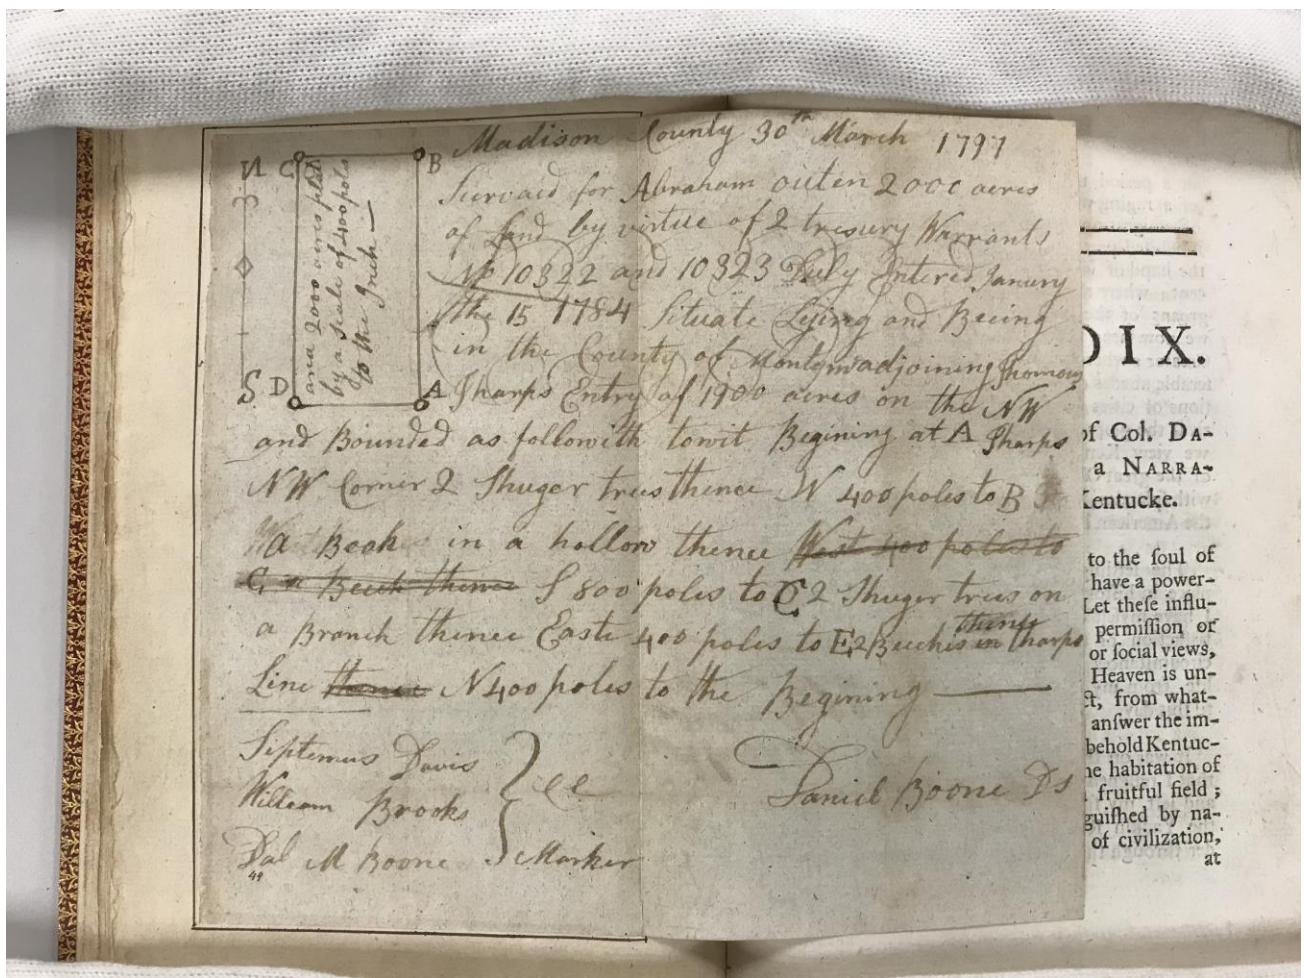 Madison County 30th March 1797
Survaid for Abraham outen 2000 acres
of Land by virtue of 2 tresury Warrants
No 10322 and 10323 Entered Janury
the 15 1784 Situate Lying and Being
in the County of adjoining Thomas
Sharps Entry of 1900 acres on the NW
and Bounded as followith towit Begining at A Sharps
NW Corner 2 Shuger trees thence N 400 poles to B
a Beek in a hollow thence West 400 poles to
C a Beech thence S 800 poles to C 2 Shuger trees on
a Branch thence East 400 poles to E 2 Beeches in tharps
thence
Line thence N 400 poles to the Begining
Septemus Davis
William Brooks
cc
Dal M Boone Marker
Daniel Boone Ds
N C B
S D A
area 2000 acres
by a scale of 400 pols
to the Inch
DIX.
of Col. DA-
a NARRA-
Kentucke.
to the ſoul of
have a power-
Let theſe influ-
permiſſion or
or ſocial views,
Heaven is un-
ct, from what-
anſwer the im-
behold Kentuc-
he habitation of
fruitful field ;
guiſhed by na-
of civilization,
at